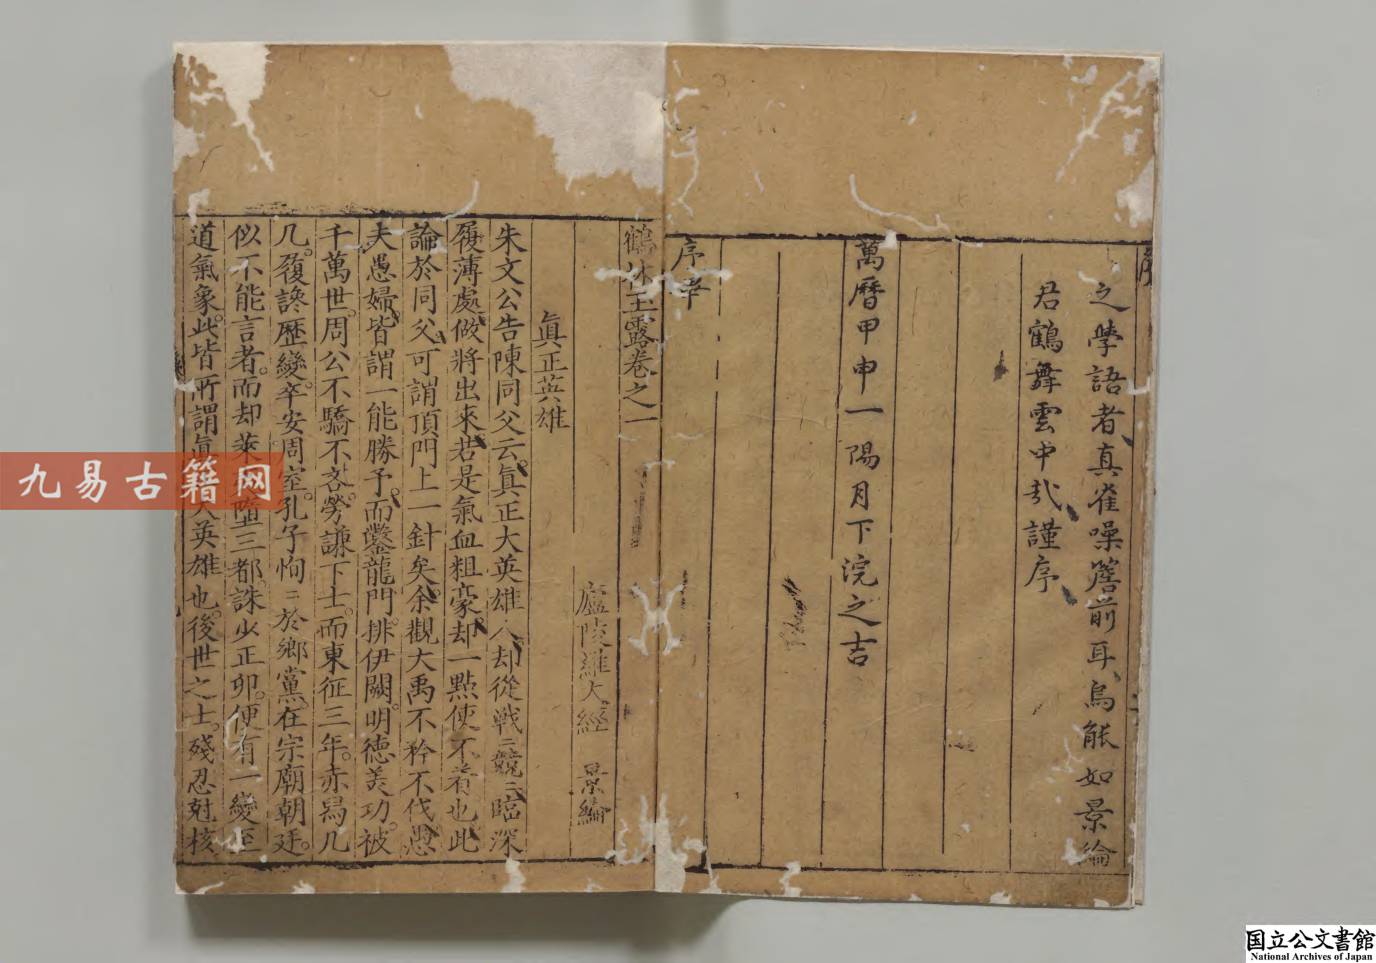 之學語者真雀噪簷前耳烏能如景綸
君鶴舞雲中哉謹序
萬曆甲申一陽月下浣之吉
序畢
鶴林玉露卷之一
廬陵羅大經 景綸
眞正英雄
朱文公告陳同父云眞正大英雄人却從戰〻兢〻臨深
履薄處做將出來若是氣血粗豪却一點使不着也此
論於同父可謂頂門上一針矣余觀大禹不矜不伐愚
夫愚婦皆謂一能勝予而鑿龍門排伊闕明德美功被
千萬世周公不驕不吝勞謙下士而東征三年赤舄几
几䂓讒歷變卒安周室孔子恂〻於鄉黨在宗廟朝廷
似不能言者而却萊 墮三都誅少正卯便有一變至
道氣象此皆所謂眞 大英雄也後世之士殘忍尅核
九易古籍网
国立公文書館
National Archives of Japan